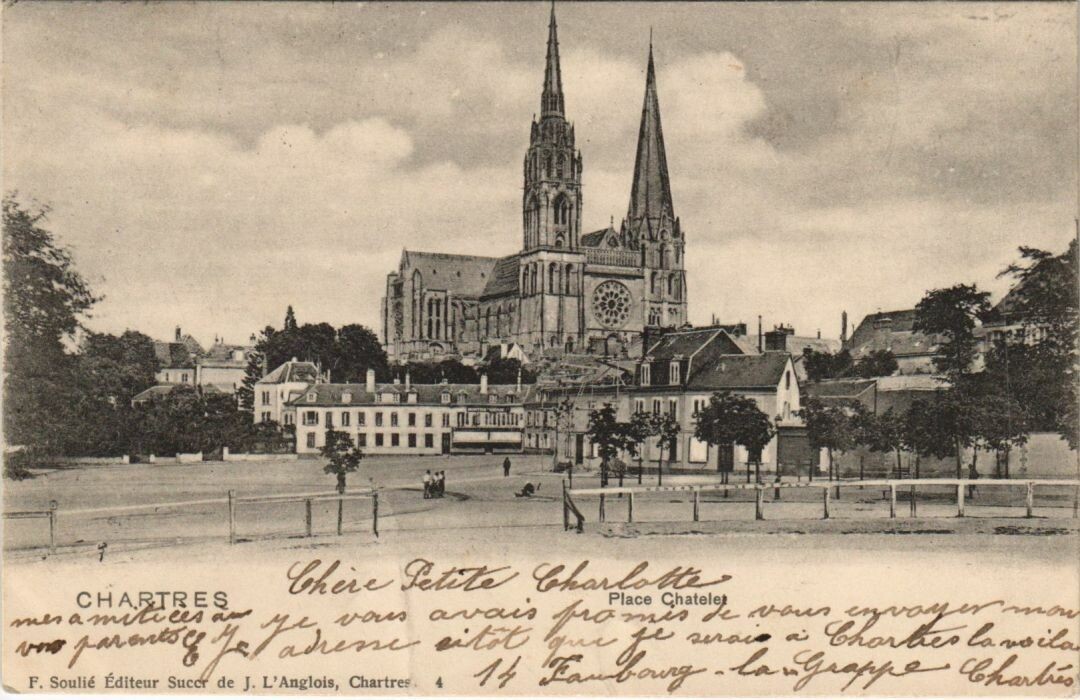 Chère Petite Charlotte
CHARTRES
Place Chatelet
mes amitiées au je vous avais promis de vous envoyer mon
vos parents je adresse aitôt que je serais à Chartres la voila
14 Faubourg-la-Grappe Chartres
F. Soulié Éditeur Succr de J. L'Anglois, Chartres 4